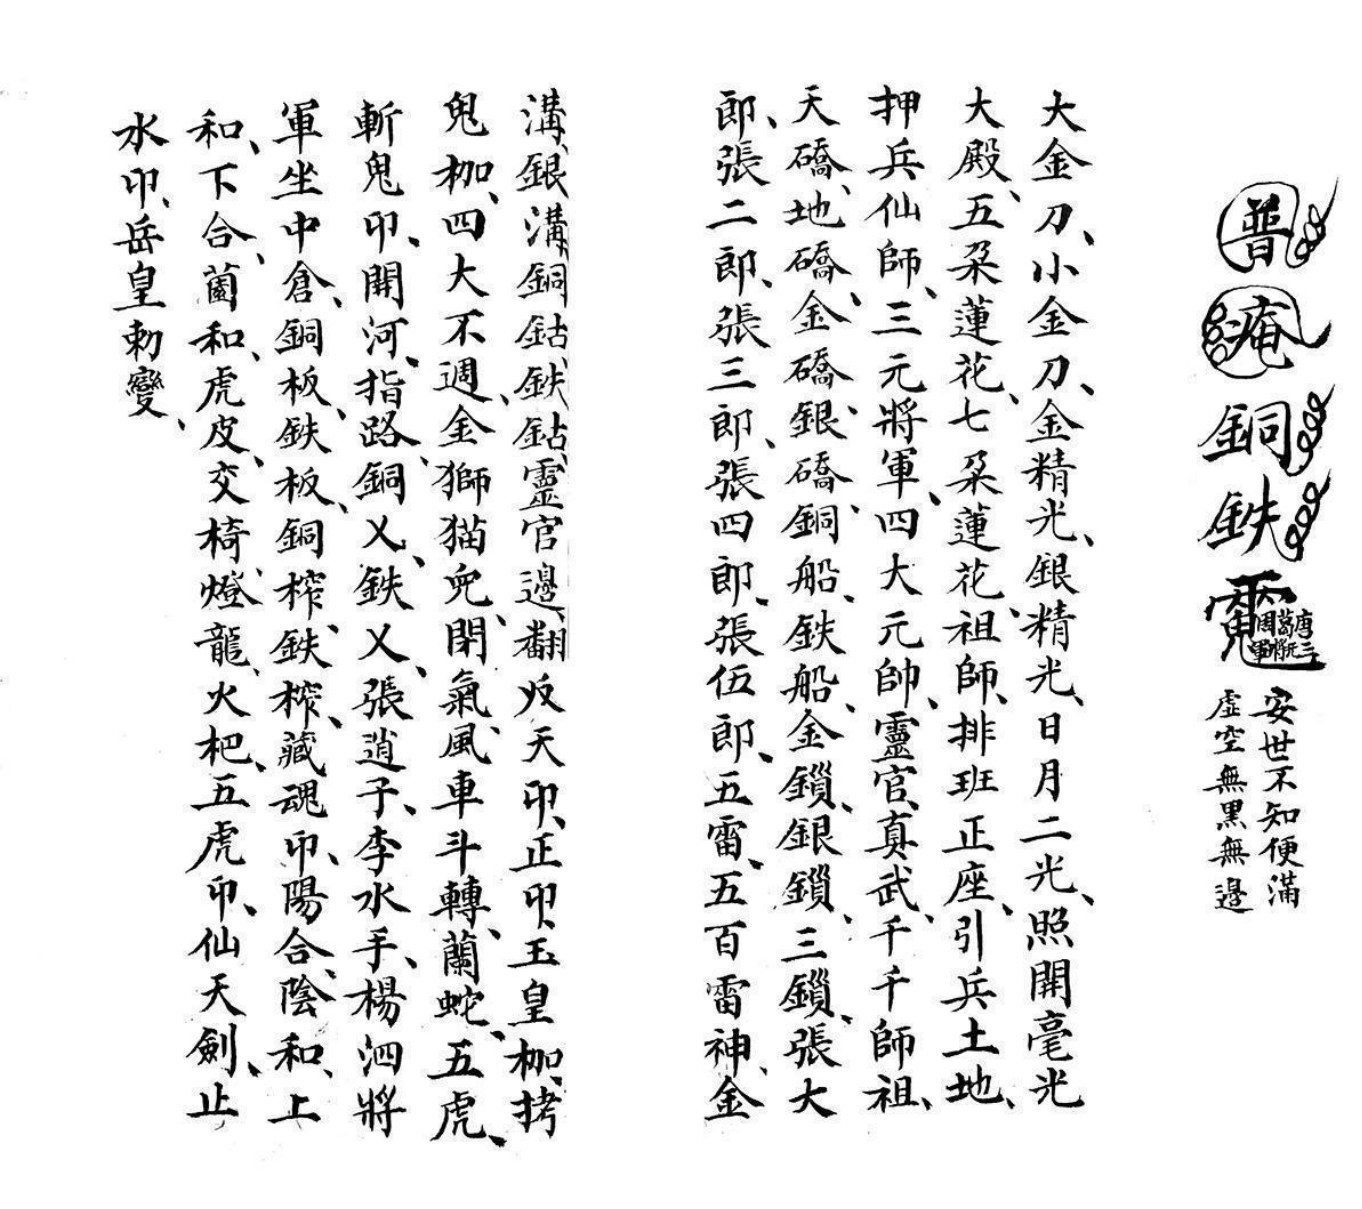 普庵銅鉄
唐葛周
三元將軍
安世不知便滿
虛空無黑無邊
大金刀、小金刀、金精光、銀精光、日月二光、照開毫光
大殿、五朵蓮花、七朵蓮花、祖師、排班正座、引兵土地、
押兵仙師、三元將軍、四大元帥、靈官、真武、千千師祖、
天磽、地磽、金磽、銀磽、銅船、鉄船、金鎖、銀鎖、三鎖、張大
郎、張二郎、張三郎、張四郎、張伍郎、五雷、五百雷神、金
溝、銀溝、銅鈷、鉄鈷、靈官邊、翻天印、正印、玉皇枷、拷
鬼枷、四大不週、金獅猫兒、閉氣、風車斗轉、蘭蛇、五虎、
斬鬼印、開河、指路、銅乂、鉄乂、張逍子、李水手、楊泗將
軍坐中倉、銅板、鉄板、銅榨、鉄榨、藏魂印、陽合、陰和、上
和、下合、菌和、虎皮、交椅、燈龍、火杷、五虎印、仙天劍、止
水印、岳皇勅變、